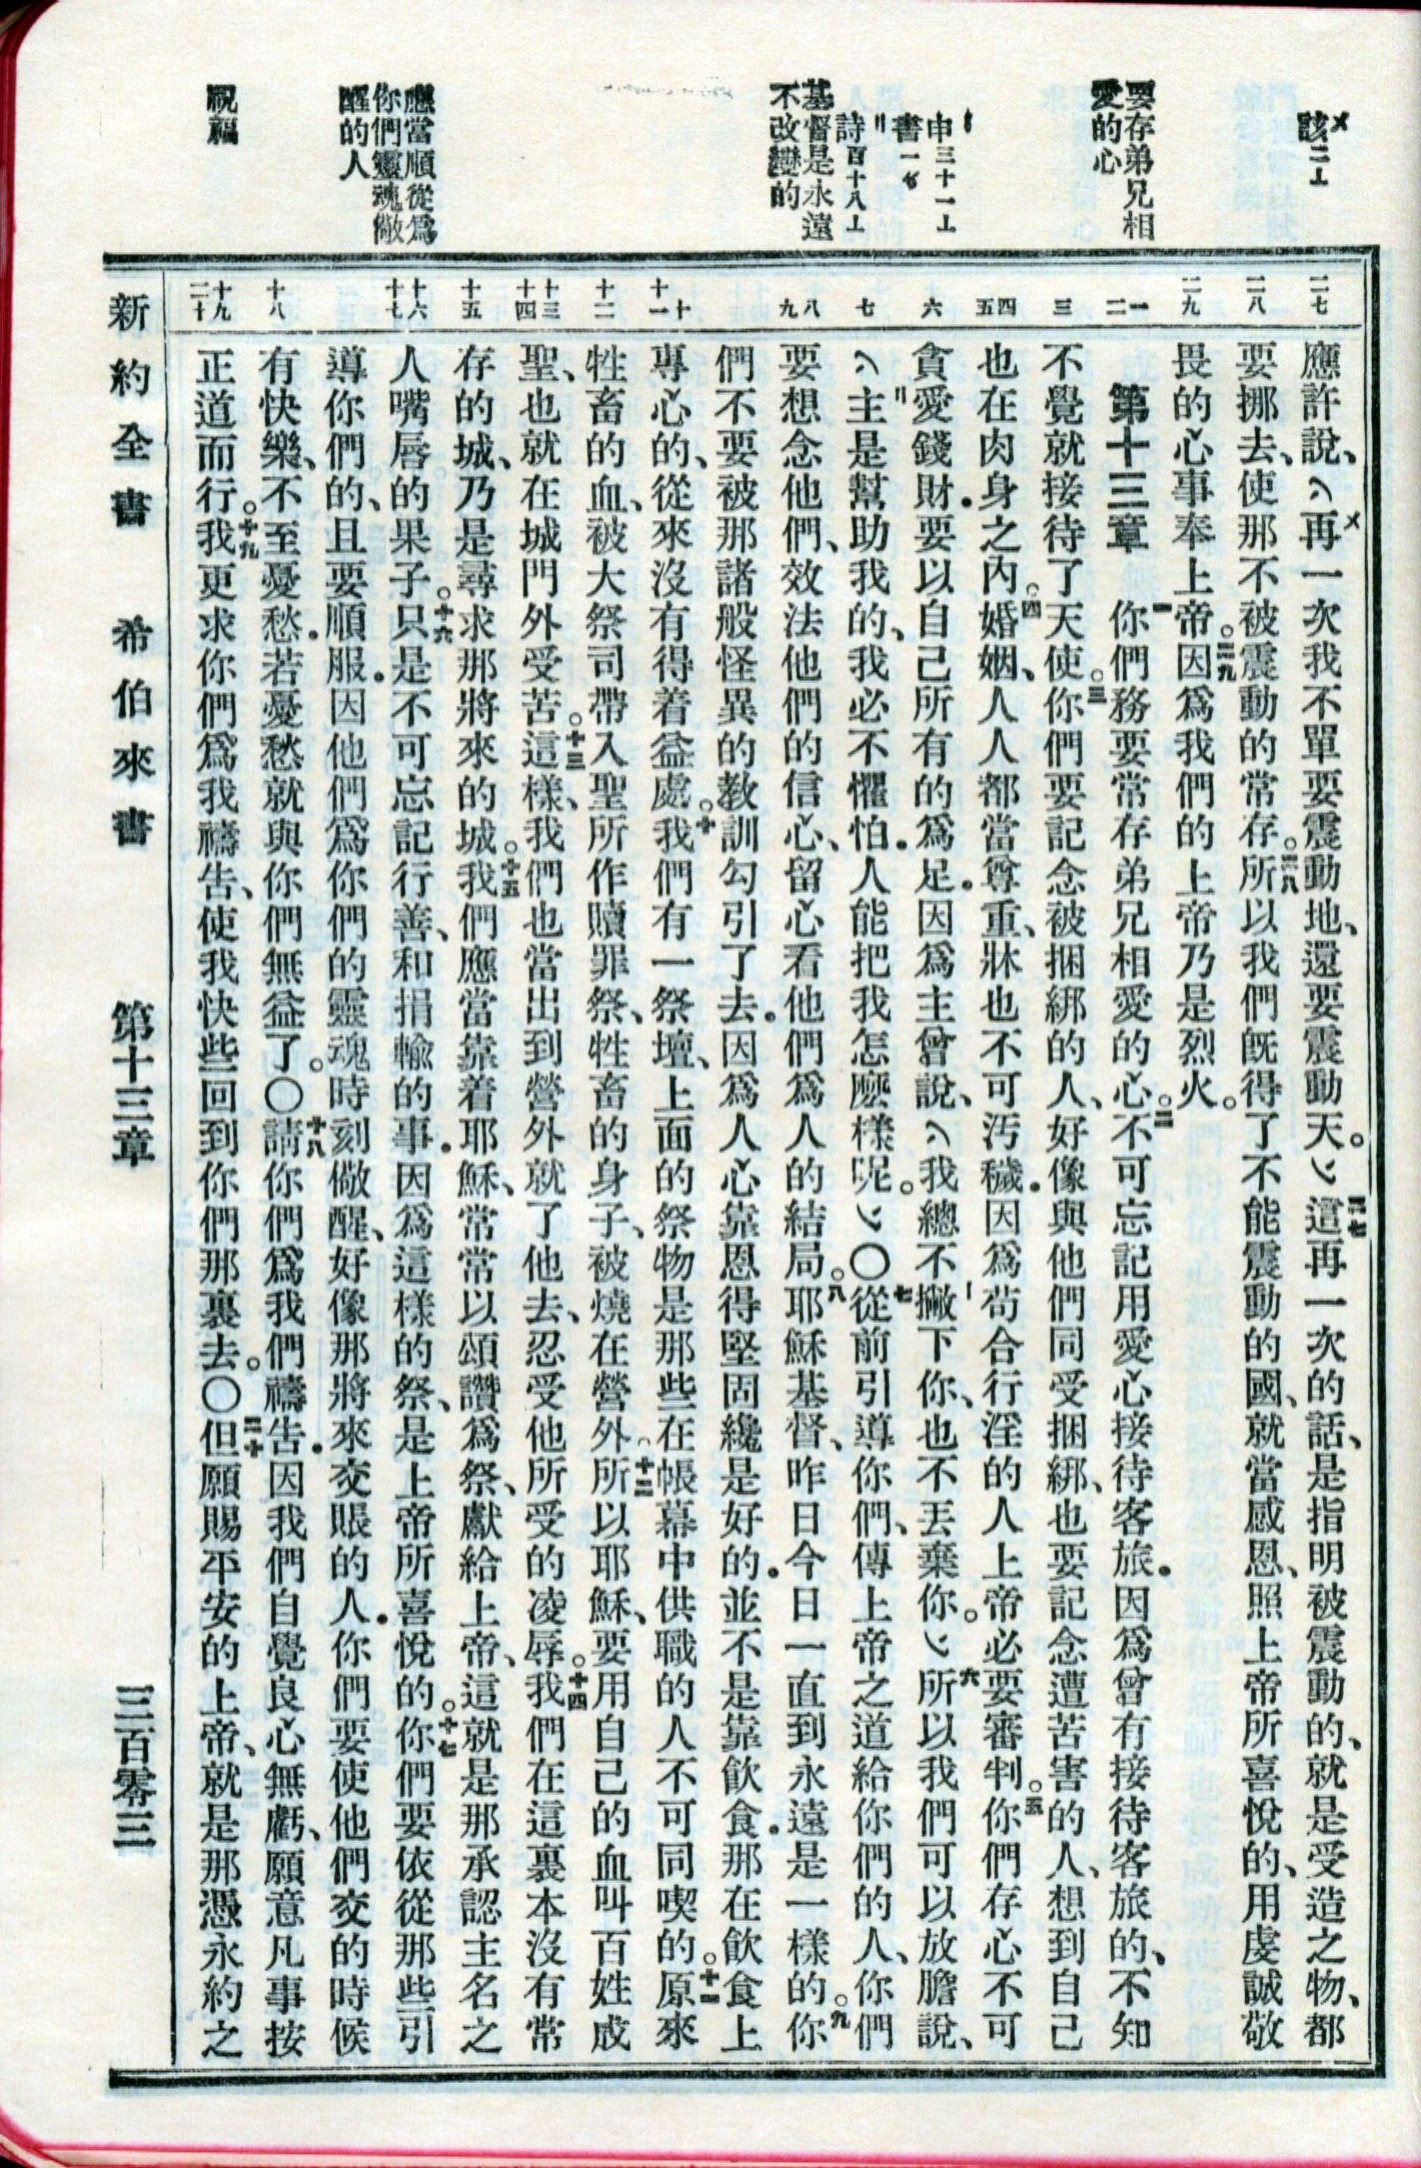 該二
要存弟兄相
愛的心
申三十一
書一
詩百十八
基督是永遠
不改變的
應當順從爲
你們靈魂儆
醒的人
祝福
二七
二八
二九
一
二
三
四
五
六
七
八
九
十
十一
十二
十三
十四
十五
十六
十七
十八
十九
二十
應許說、再一次我不單要震動地、還要震動天。二七這再一次的話、是指明被震動的、就是受造之物、都
要挪去、使那不被震動的常存。二八所以我們旣得了不能震動的國、就當感恩、照上帝所喜悅的、用虔誠敬
畏的心事奉上帝。二九因爲我們的上帝乃是烈火。
第十三章 一你們務要常存弟兄相愛的心。二不可忘記用愛心接待客旅．因爲曾有接待客旅的、不知
不覺就接待了天使。三你們要記念被捆綁的人、好像與他們同受捆綁、也要記念遭苦害的人、想到自己
也在肉身之內。四婚姻、人人都當尊重、牀也不可汚穢．因爲苟合行淫的人上帝必要審判。五你們存心不可
貪愛錢財．要以自己所有的爲足．因爲主曾說、我總不撇下你、也不丟棄你。六所以我們可以放膽說、
主是幫助我的、我必不懼怕．人能把我怎麼樣呢。〇七從前引導你們、傳上帝之道給你們的人、你們
要想念他們、效法他們的信心、留心看他們爲人的結局。八耶穌基督、昨日今日一直到永遠是一樣的。九你
們不要被那諸般怪異的敎訓勾引了去．因爲人心靠恩得堅固纔是好的．並不是靠飮食．那在飮食上
專心的、從來沒有得着益處。十我們有一祭壇、上面的祭物是那些在帳幕中供職的人不可同喫的。十一原來
牲畜的血、被大祭司帶入聖所作贖罪祭、牲畜的身子、被燒在營外。十二所以耶穌、要用自己的血叫百姓成
聖、也就在城門外受苦。十三這樣、我們也當出到營外就了他去、忍受他所受的凌辱。十四我們在這裏本沒有常
存的城、乃是尋求那將來的城。十五我們應當靠着耶穌、常常以頌讚爲祭、獻給上帝、這就是那承認主名之
人嘴唇的果子。十六只是不可忘記行善、和捐輸的事．因爲這樣的祭、是上帝所喜悅的。十七你們要依從那些引
導你們的、且要順服．因他們爲你們的靈魂時刻儆醒、好像那將來交賬的人．你們要使他們交的時候
有快樂、不至憂愁．若憂愁就與你們無益了。〇十八請你們爲我們禱告．因我們自覺良心無虧、願意凡事按
正道而行。十九我更求你們爲我禱告、使我快些回到你們那裏去。〇二十但願賜平安的上帝、就是那憑永約之
新約全書 希伯來書 第十三章 三百零三